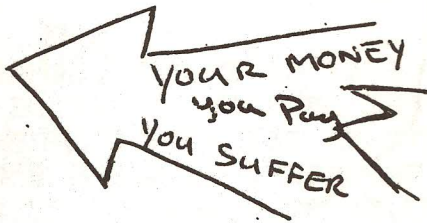 YOUR MONEY
you Pay
YOU SUFFER